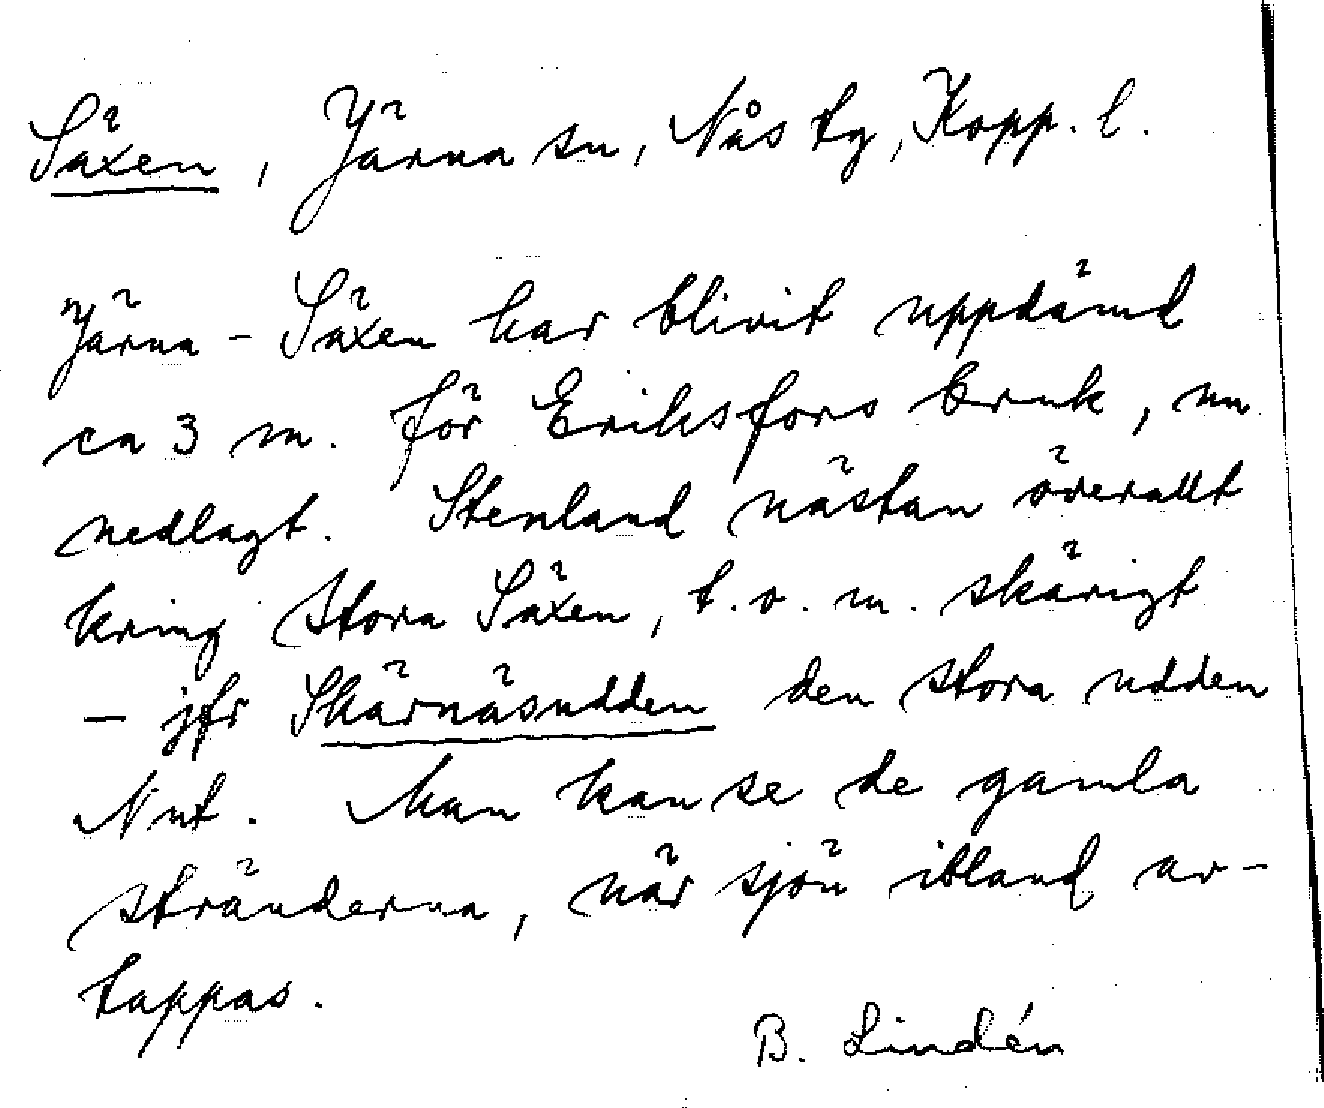 Säxen, Järna sn, Nås tg, Kopp. l.
Järna - Säxen har blivit uppdämd
ca 3 m. för Eriksfors bruk, nu
nedlagt. Stenland nästan överallt
kring Stora Säxen, t.o.m. skärigt
- jfr Skärnäsudden den stora udden
N ut. Man kan se de gamla
stränderna, när sjön ibland av-
tappas.
B. Lindén